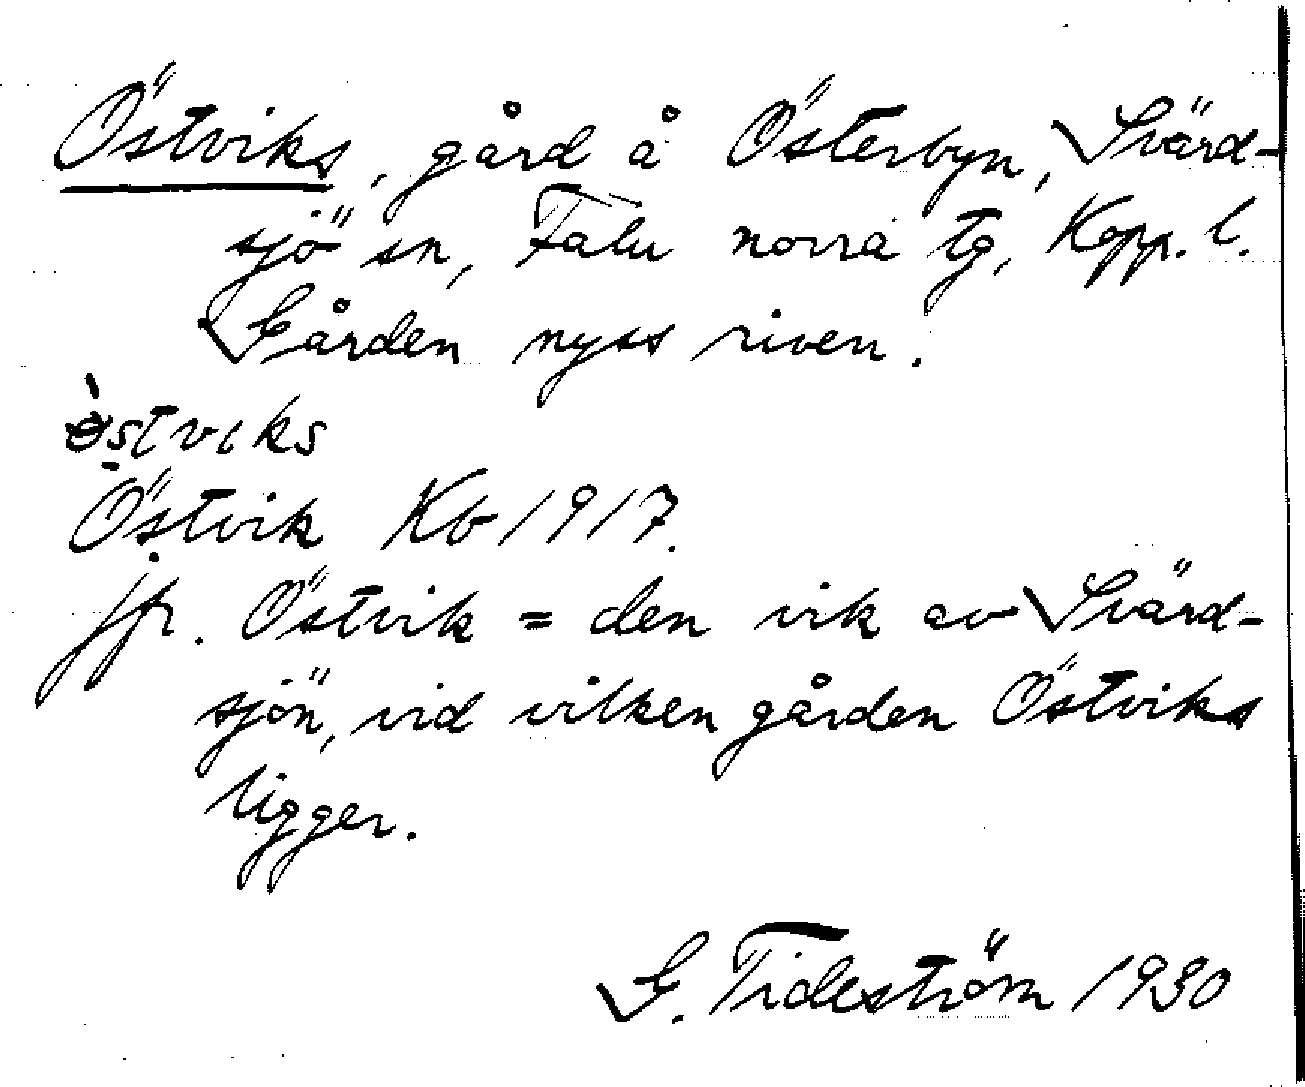 Östviks, gård å Österbyn, Svärd-
sjö sn, Falu norra tg, Kopp. l.
Gården nyss riven.
Östvik Kb 1917.
jfr. Östvik = den vik av Svärd-
sjön, vid vilken gården Östviks
ligger.
G. Tideström 1930